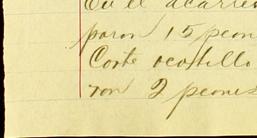 En el acarre
paron 15 peon
Corte ocotillo
ron 2 peones